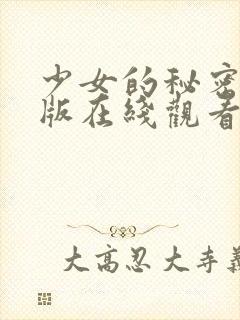 少女的秘密
版在线觀看
大高忍大寺義